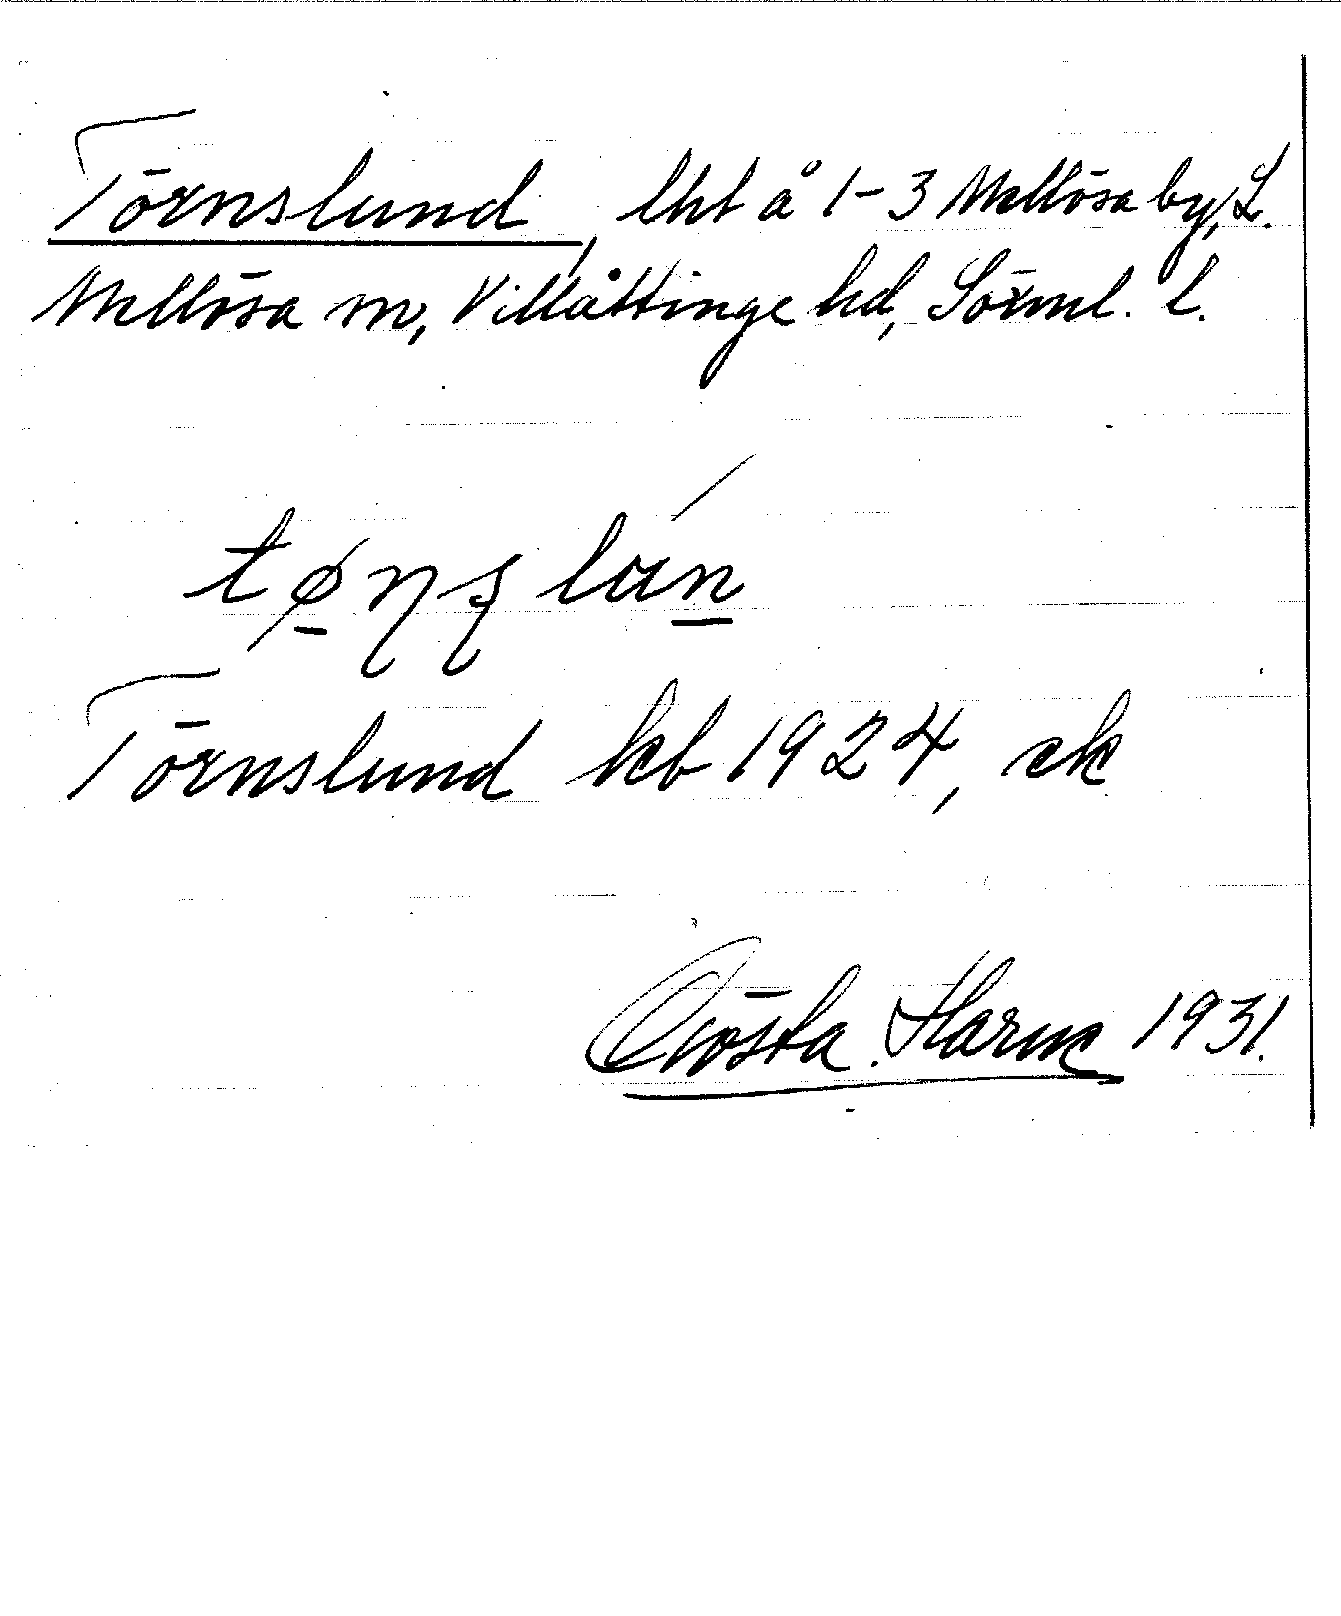 Törnslund, lht å 1-3 Mellösa by, L.
Mellösa sn, Villåttinge hd, Sörml. l.
Törnslund kb 1924, ek
Gösta Harne 1931.